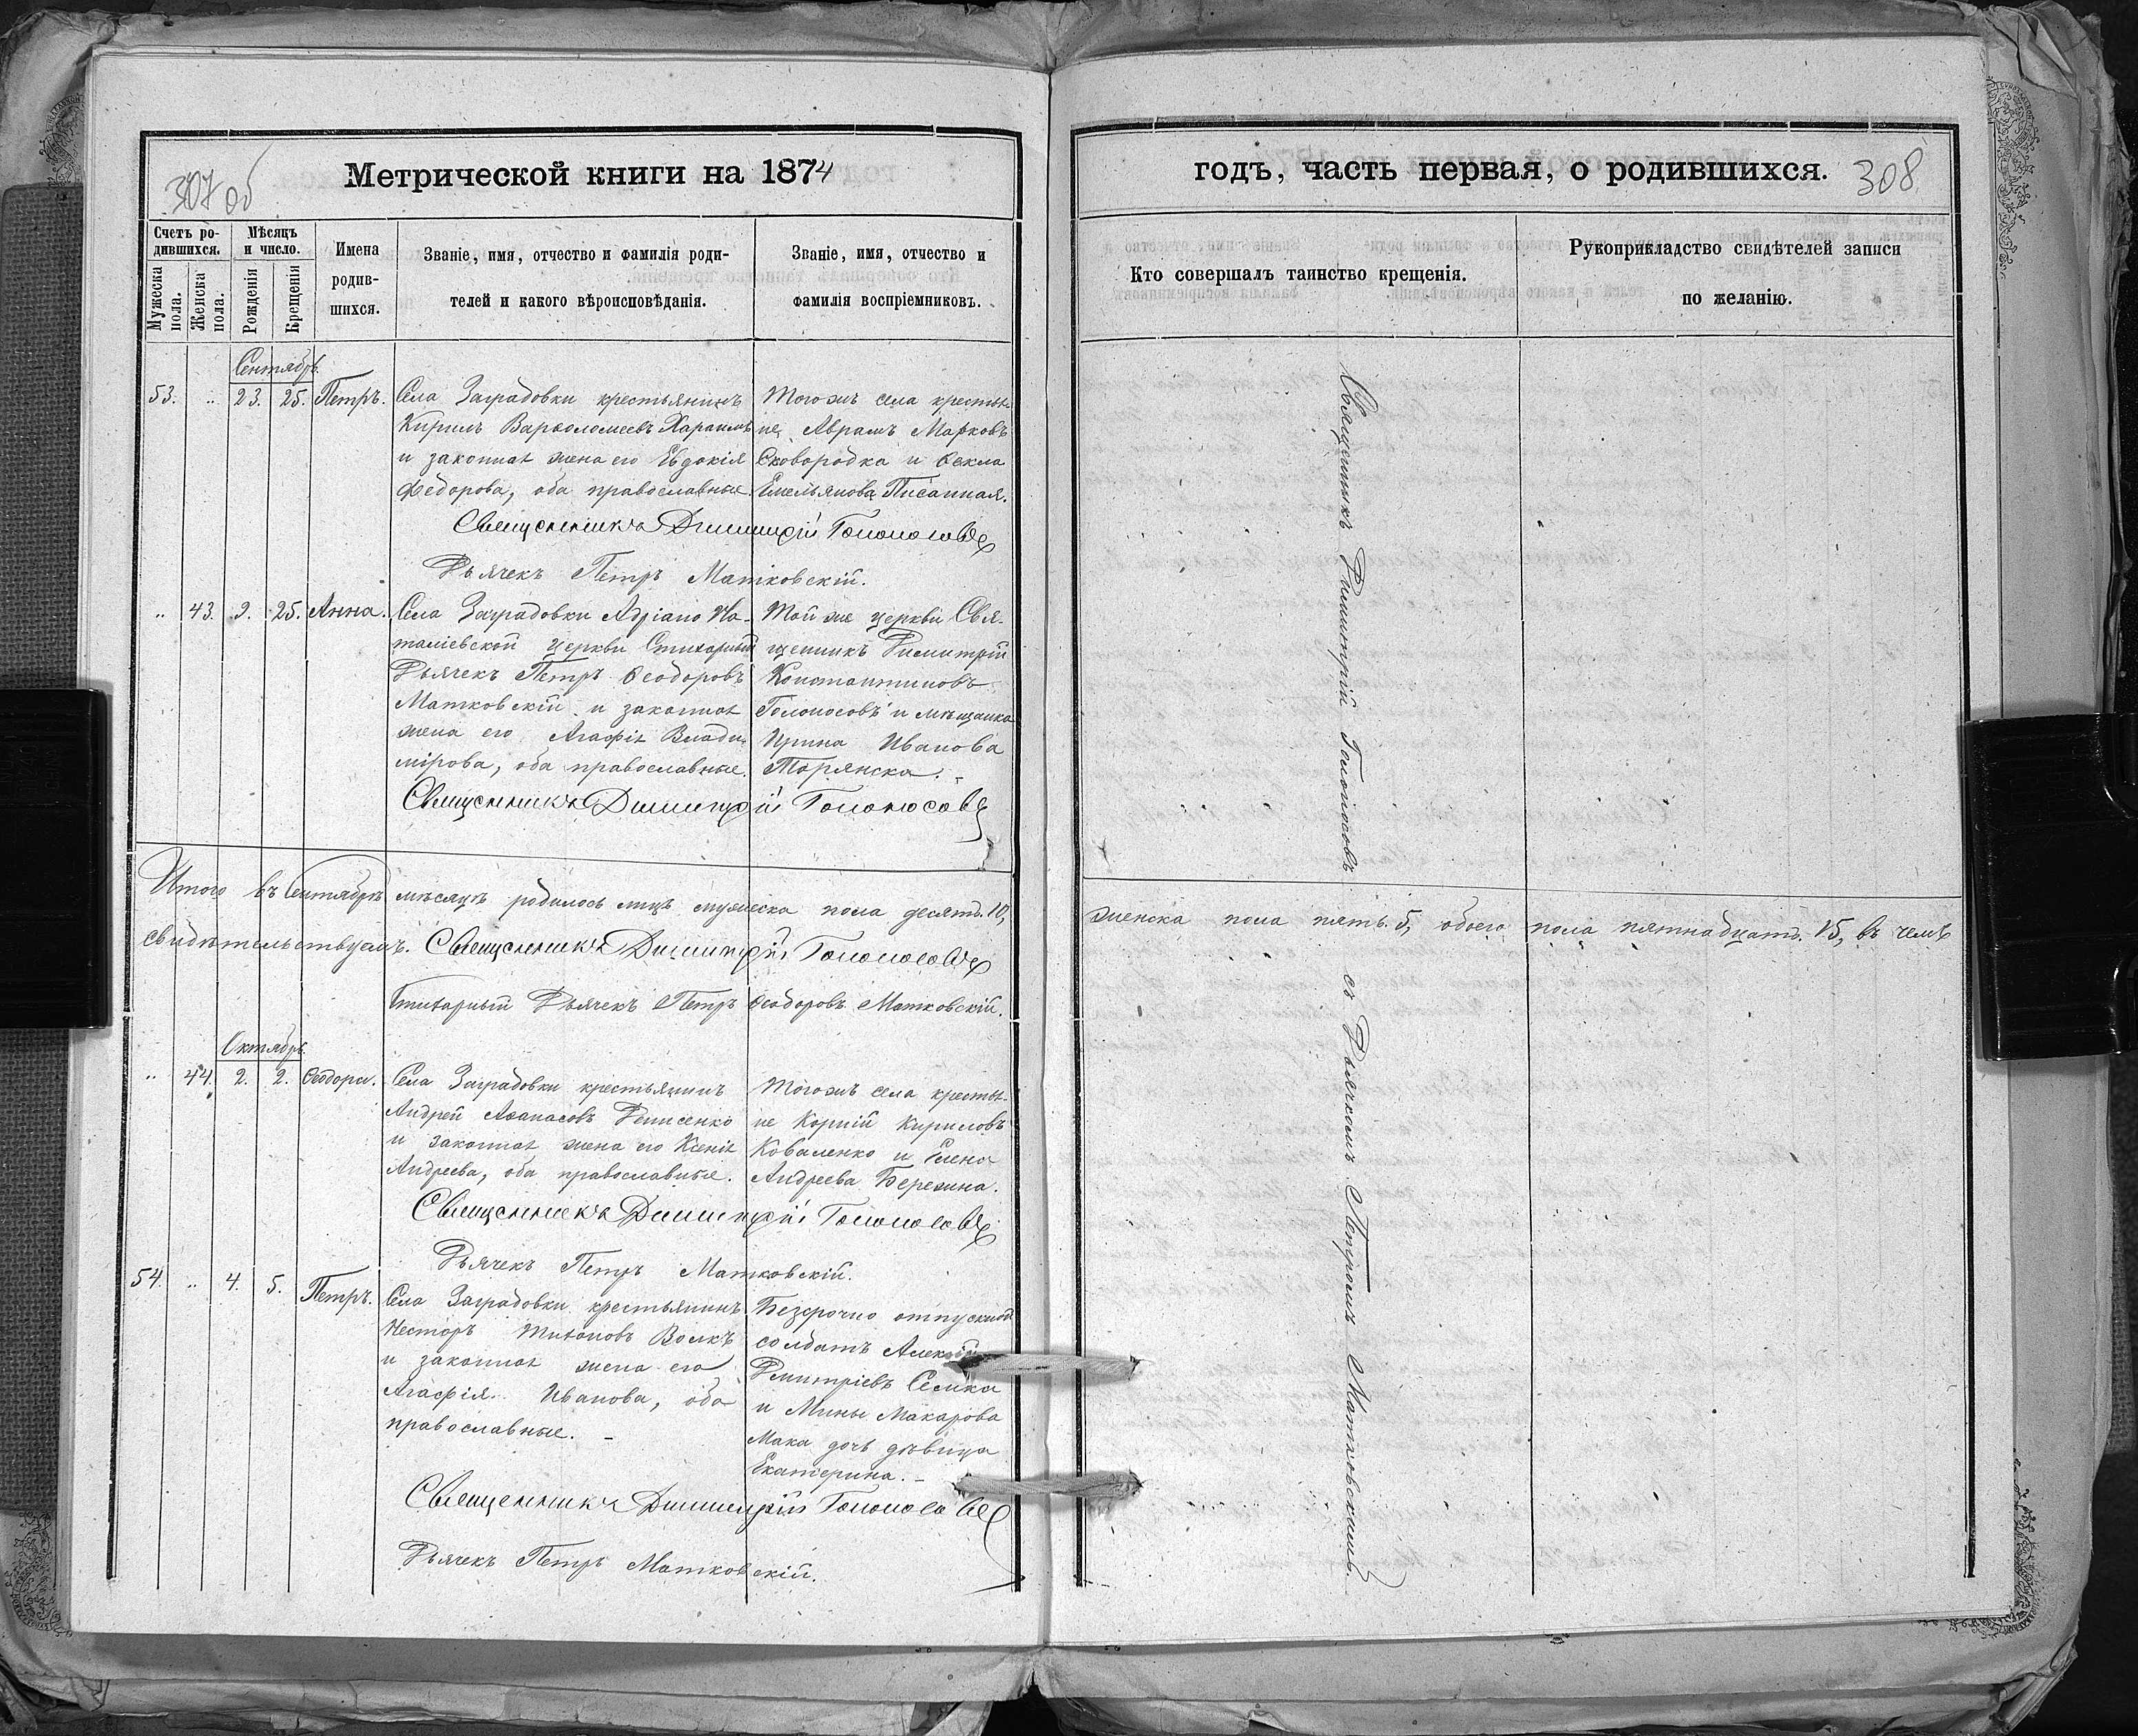 307 об
Метрической книги на 1874
Счетъ ро-
дившихся.
Мужеска
пола.
Женска
пола.
Мѣсяцъ
и число.
Рожденія
Крещенія
Имена
родив-
шихся.
Званіе, имя, отчество и фамилія роди-
телей и какого вѣроисповѣданія.
Званіе, имя, отчество и
фамилія воспріемниковъ.
Сентябрь.
53. .. 23. 25. Петръ.
Села Заградовки крестьянинъ
Кирилъ Варѳоломеевъ
и законная жена его Евдокія
Федорова, оба православные.
Тогожъ села крестья-
не, Аврамъ Марковъ
Сковородка и Ѳекла
Емельянова Писанная.
Священникъ Димитрій Голоносовъ
Дьячекъ Петръ Матковскій.
.. 43. 9. 25. Анна.
Села Заградовки Адріано На-
таліевской церкви Стихарный
Дьячекъ Петръ Ѳеодоровъ
Матковскій и законная
жена его Агафія Влади-
мірова, оба православные.
Той же церкви Свя-
щенникъ Димитрій
Константиновъ
Голоносовъ и мѣщанка
Ирина Иванова
Торянска.
Священникъ Димитрій Голоносовъ
Итого въ Сентябрѣ мѣсяцѣ родилось лицъ мужеска пола десять. 10,
свидѣтельствуемъ. Священникъ Димитрій Голоносовъ
Стихарный Дьячекъ Петръ Ѳеодоровъ Матковскій.
Октябрь.
.. 44. 2. 2. Ѳеодора.
Села Заградовки крестьянинъ
Андрей Аѳанасовъ Денисенко
и законная жена его Ксенія
Андреева, оба православные.
Тогожъ села крестья-
не Корній Кириловъ
Коваленко и Елена
Андреева Березина.
Священникъ Димитрій Голоносовъ
Дьячекъ Петръ Матковскій.
54. .. 4. 5. Петръ.
Села Заградовки крестьянинъ
Несторъ Тихоновъ Волкъ
и законная жена его
Агафія Иванова, оба
православные.
Безсрочно отпускной
солдатъ Алексій
Дмитріевъ Семка
и Мины Макарова
Мака дочь дѣвица
Екатерина.
Священникъ Димитрій Голоносовъ
Дьячекъ Петръ Матковскій.
годъ, часть первая, о родившихся.
308
Кто совершалъ таинство крещенія.
Рукоприкладство свидѣтелей записи
по желанію.
Священникъ Димитрій Голоносовъ съ Дьячкомъ Петромъ Матковскимъ.
женска пола пять. 5, обоего пола пятнадцать. 15, въ чемъ